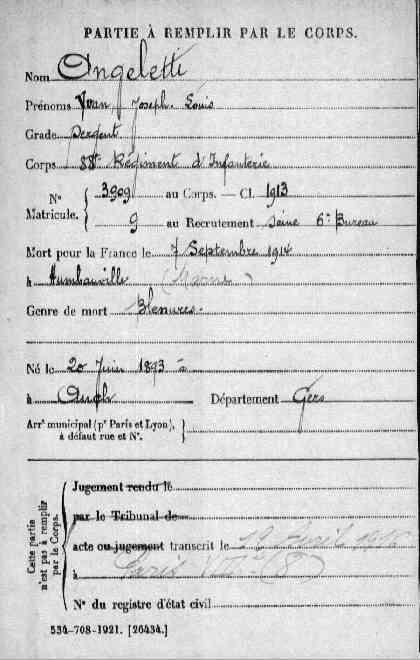 PARTIE À REMPLIR PAR LE CORPS.
Nom Angeletti
Prénoms Yvan Joseph Louis
Grade Sergent
Corps 88e Régiment d'Infanterie
N° Matricule. { 3909 au Corps. — Cl. 1913
9 au Recrutement Seine 6e Bureau
Mort pour la France le 7 Septembre 1914
à Humbauville (Marne)
Genre de mort Blessures.
Né le 20 Juin 1893
à Auch Département Gers
Arr' municipal (p' Paris et Lyon), à défaut rue et N°. }
Cette partie n'est pas à remplir par le Corps.
Jugement rendu le
par le Tribunal de
acte ou jugement transcrit le Avril
à Paris (8e)
N° du registre d'état civil
534-708-1921. [26434.]